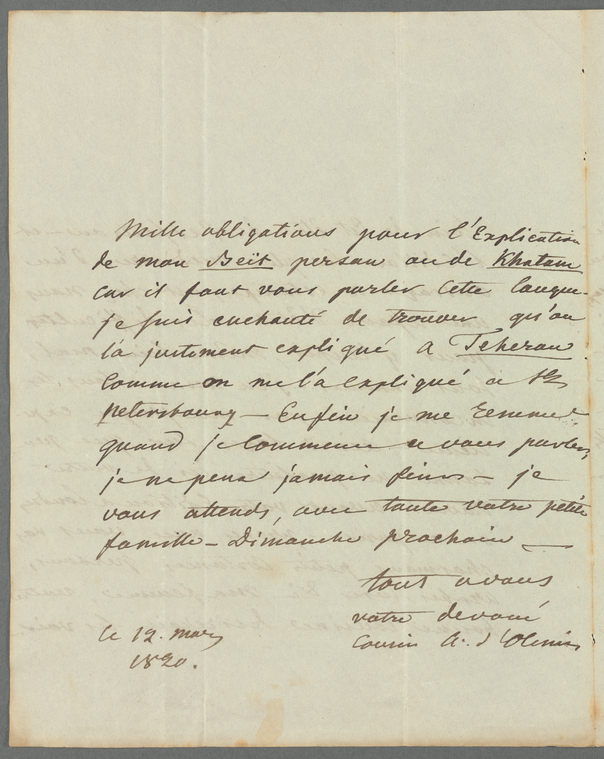 Mille obligations pour l'Explication
de mon Beit persan ou de Khatam
car il faut vous parler cette langue.
je suis enchanté de trouver qu'on
l'a justement expliqué a Teheran
comme on me l'a expliqué a St
petersbourg – Enfin je me
quand je commence a vous parler,
je ne peux jamais finir – je
vous attends, avec toute votre petite
famille – Dimanche prochain –
tout a vous
votre devoué
cousin A. d'Olenin
le 12. mars
1820.